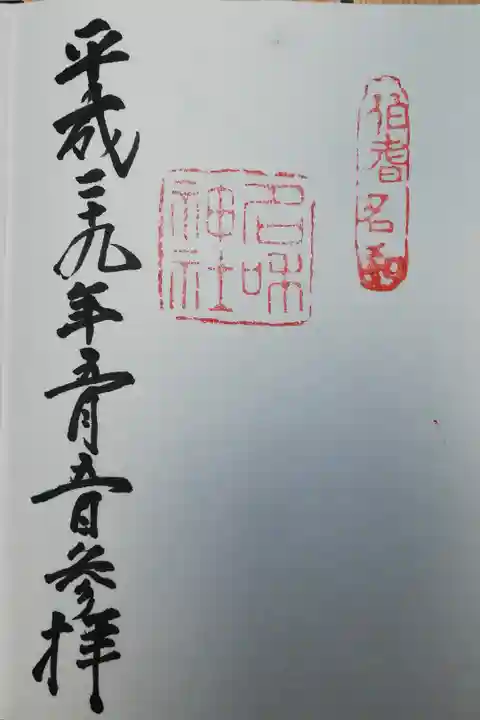 伯耆名和
名和神社
平成二十九年五月五日参拝